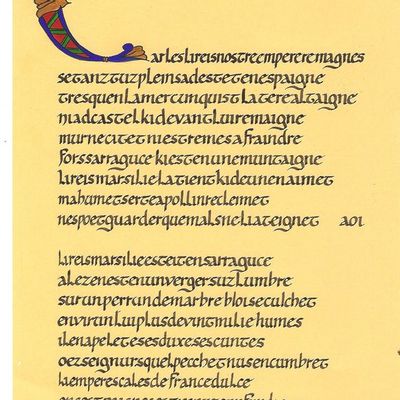 Carles li reis nostre emperere magnes
set anz tuz pleins ad estet en espaigne
tresquen la mer cunquist la tere altaigne
ni ad castel ki devant lui remaigne
mur ne citet ni est remes a fraindre
fors sarraguce ki est en une muntaigne
li reis marsilie la tient ki deu nen aimet
mahumet sert e apollin recleimet
nes poet guarder que mals ne li ateignet aoi
li reis marsilie esteit en sarraguce
alez en est en un verger suz lumbre
sur un perrun de marbre bloi se culchet
envirun lui plus de vint milie humes
il en apelet e ses dux e ses cuntes
oez seignurs quel pecchet nus encumbret
li emperes cales de france dulce